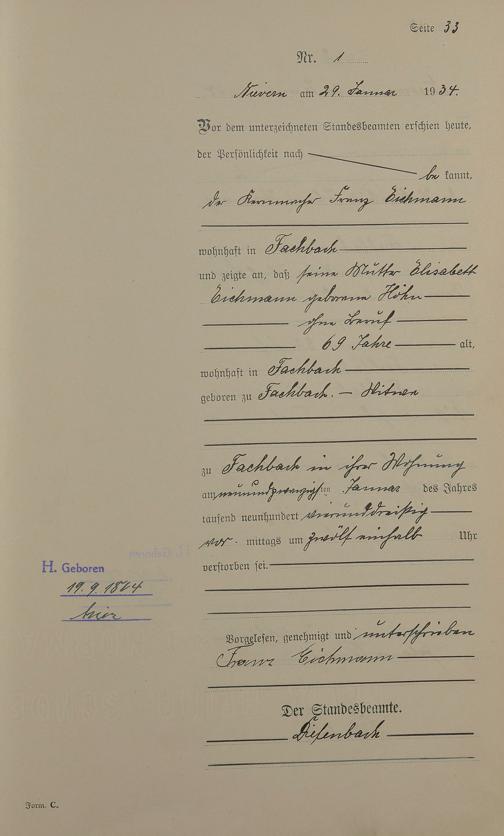 Seite 33
Nr. 1
Nievern am 29. Januar 1934.
Vor dem unterzeichneten Standesbeamten erschien heute,
der Persönlichkeit nach
be kannt,
der Kernmacher Franz Eichmann
wohnhaft in Fachbach
und zeigte an, daß seine Mutter Elisabeth
Eichmann geborene Höhn
ohne Beruf
69 Jahre alt,
wohnhaft in Fachbach
geboren zu Fachbach. — Witwe
zu Fachbach in ihrer Wohnung
am neunundzwanzigsten Januar des Jahres
tausend neunhundert vierunddreißig
vor mittags um zwölf einhalb Uhr
verstorben sei.
H. Geboren
19.9.1864
hier
Vorgelesen, genehmigt und unterschrieben
Franz Eichmann
Der Standesbeamte.
Diefenbach
Form. C.